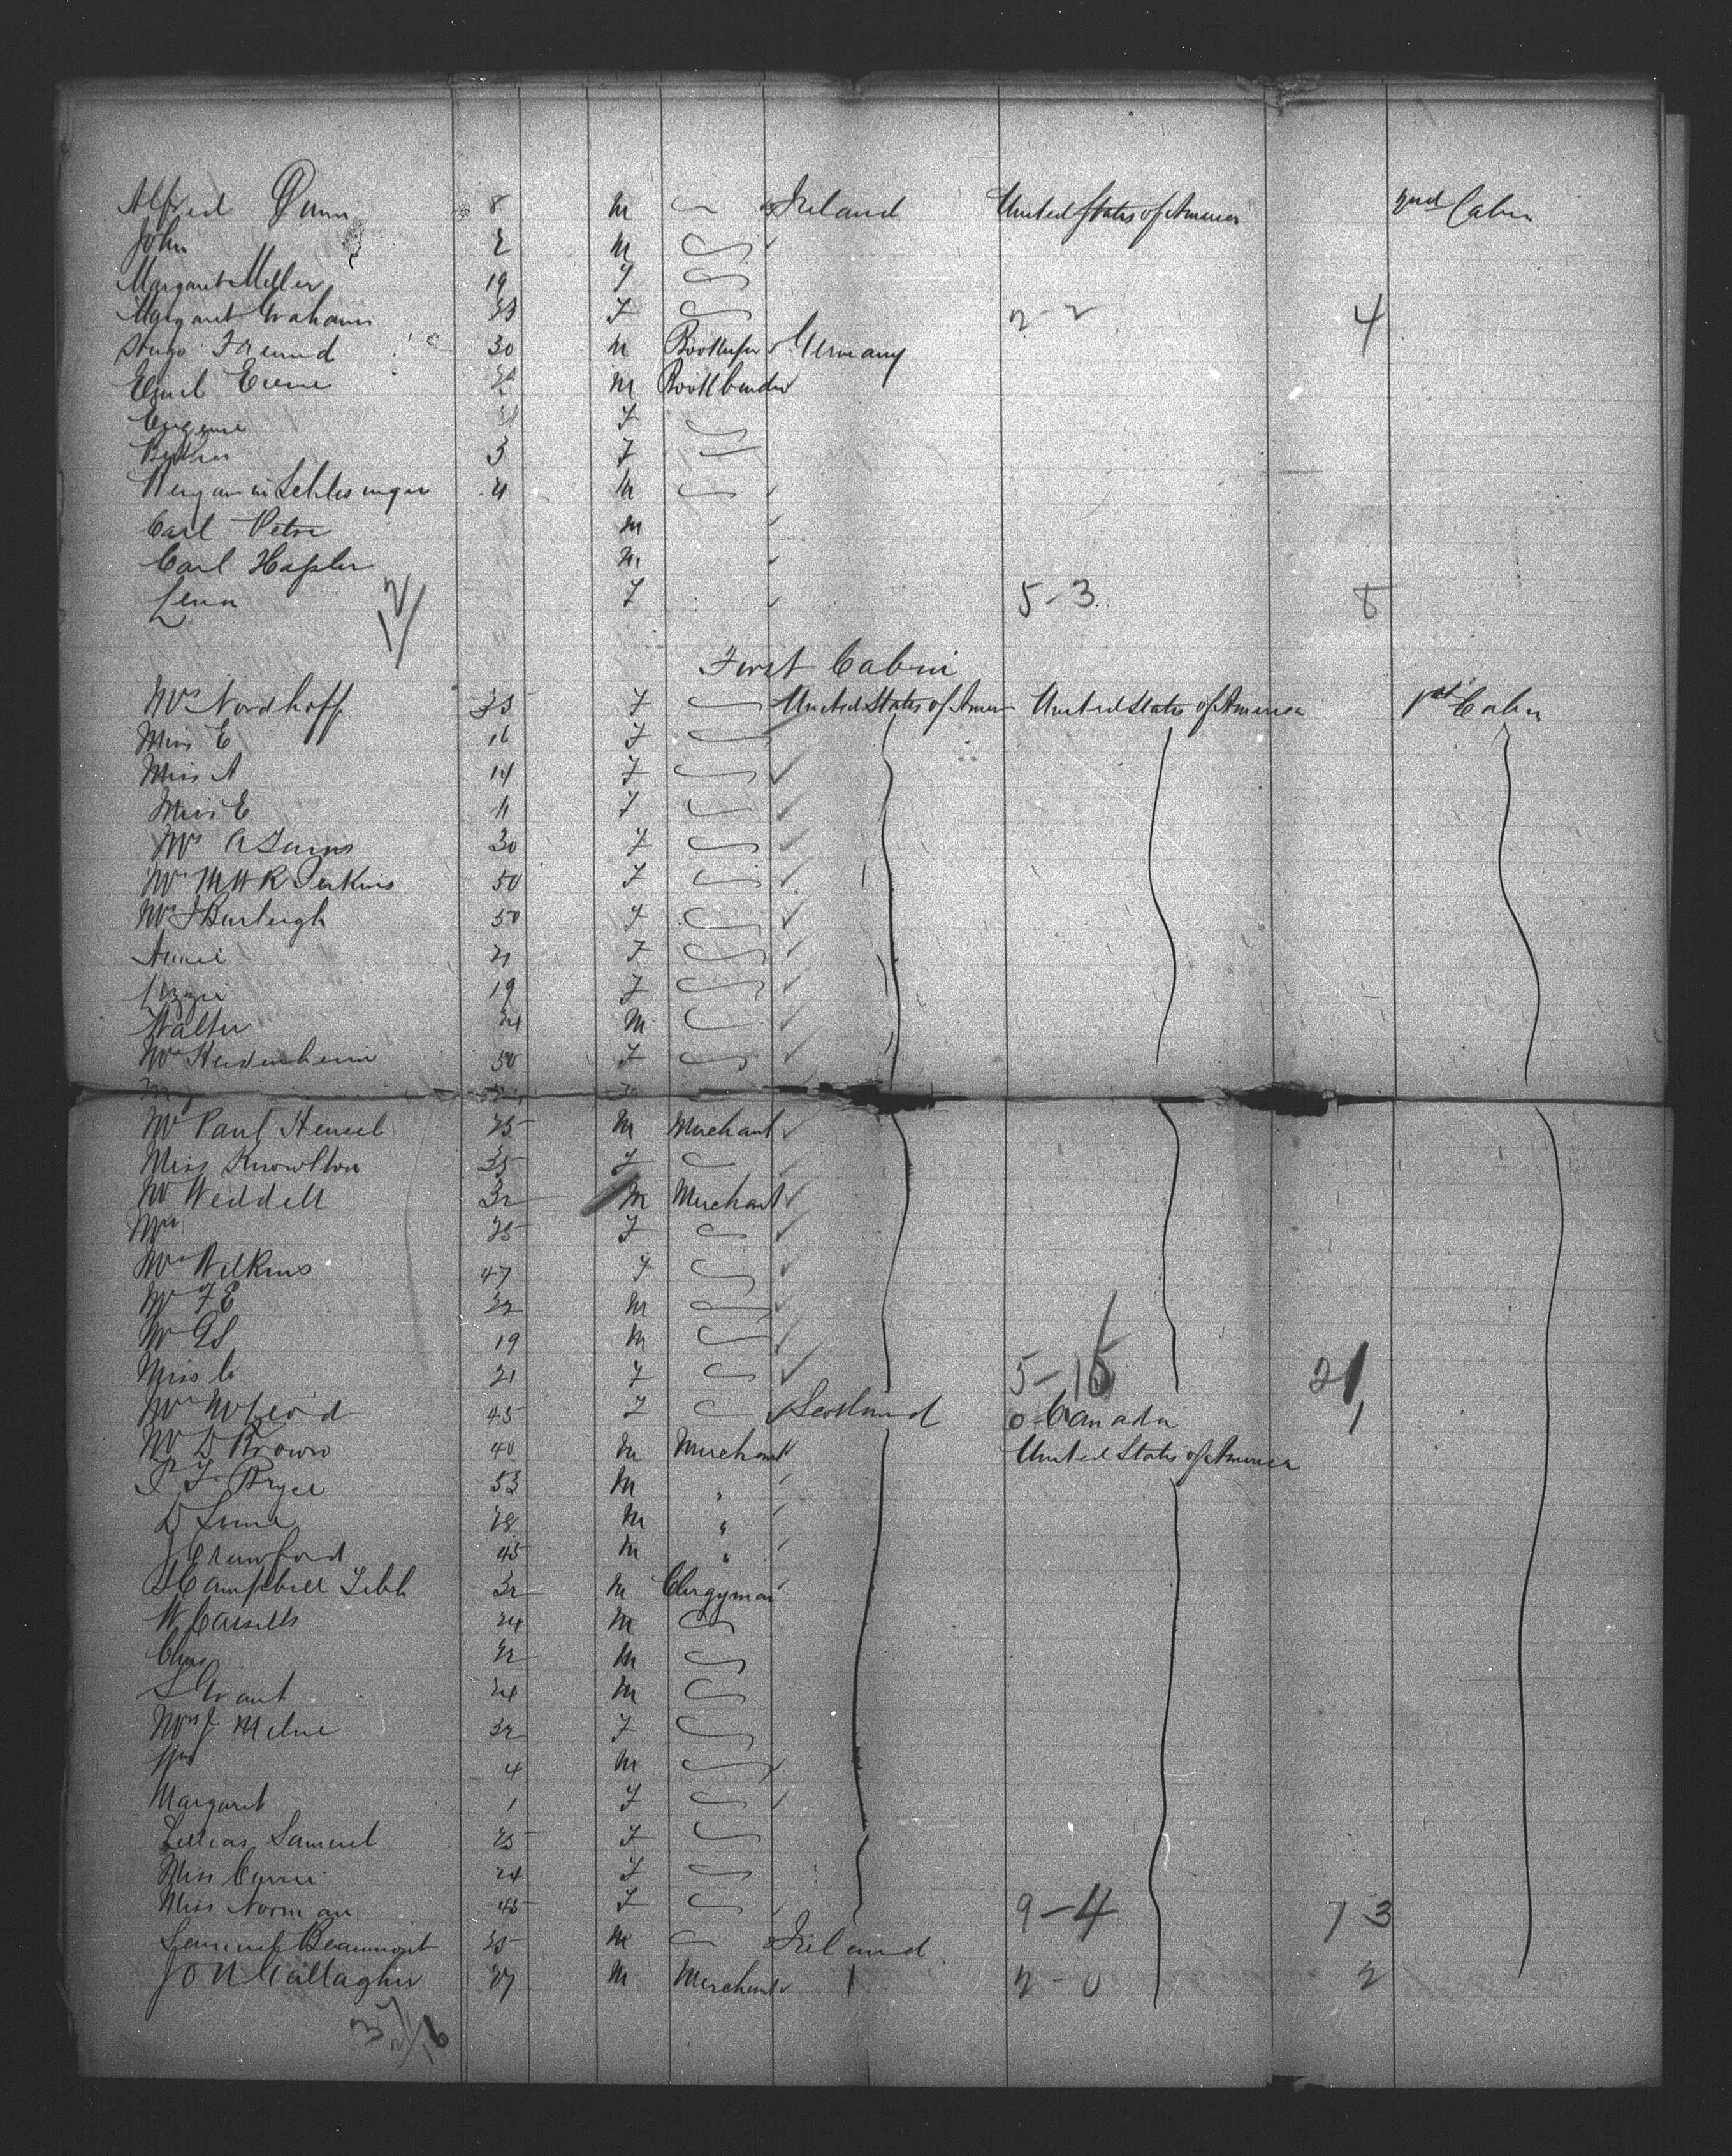 Alfred Dunn 8 M Ireland United States of America 2nd Cabin
John 2 M
Margaret Miller 19 F
Margaret Graham 23 F 2-2 4
Hugo Freund 30 M Germany
M Bookbinder
Eugenie F
3 F
Benjamin Schlesinger 21 M
Carl Petri M
Carl Hassler M
Lena F 5-3 8
12
First Cabin
Mrs Nordhoff 35 F United States of Amer United States of America 1st Cabin
Miss E 16 F
Miss A 14 F
Miss E 11 F
Mrs A 30 F
Mrs M H R Perkins 50 F
Mrs J Burleigh 50 F
Annie 21 F
Lizzie 19 F
Walter 24 M
Mrs Heidenheim 50 F
Mr Paul Hensel 25 M Merchant
Miss Knowlton 35 F
Mr Weddell 32 M Merchant
Mrs 25 F
Mrs Wilkins 47 F
Mr F E 22 M
Mr G S 19 M
Miss C 21 F 5-16 21
Mrs McLeod 45 F Scotland 0 Canada 1
Mr D Brown 40 M Merchant United States of America
P F Bryce 53 M "
D 28 M "
J Crawford 45 M "
J Campbell Tibb 32 M Clergyman
W Cassells 24 M
Chas 22 M
S Grant 24 M
Mrs J Milne 32 F
Wm 4 M
Margaret 1 F
Lillias Samuel 25 F
Miss Currie 24 F
Miss Norman 45 F 9-4 13
Samuel Beaumont 25 M Ireland
J O N Callagher 27 M Merchant 2-0 2